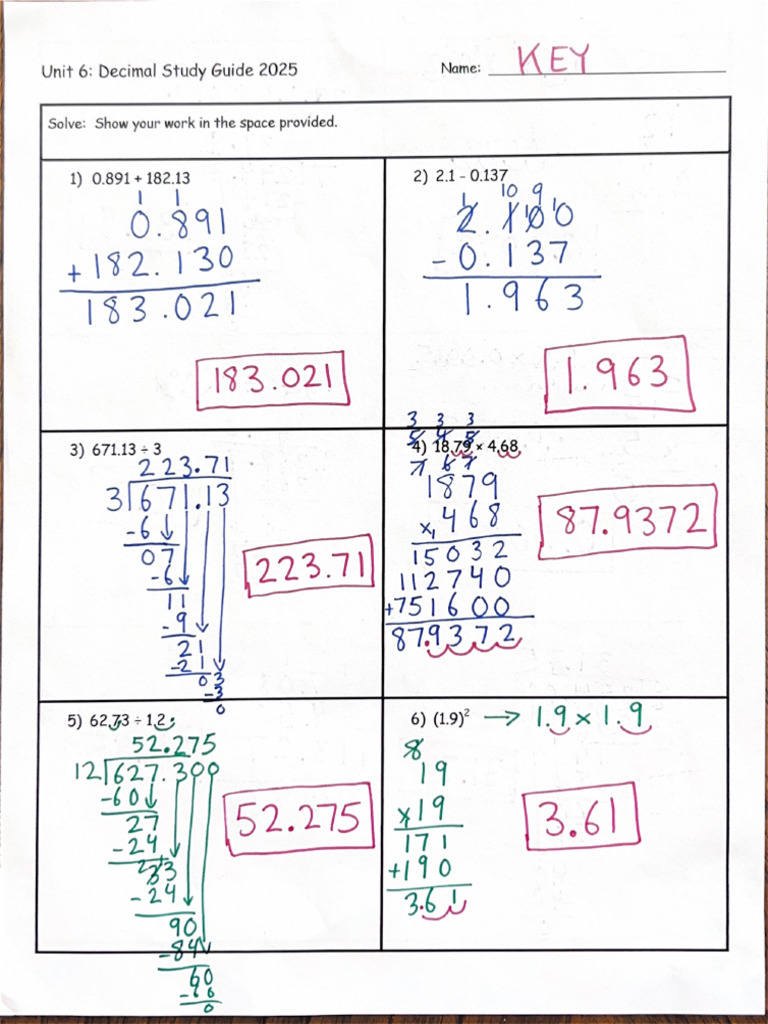 Unit 6: Decimal Study Guide 2025 Name: KEY
Solve: Show your work in the space provided.
1) 0.891 + 182.13
1 1
0.891
+ 182.130
183.021
183.021
2) 2.1 - 0.137
1 10 9
2.100
- 0.137
1.963
1.963
3) 671.13 ÷ 3
223.71
3 671.13
-6
07
-6
11
-9
21
-21
03
-3
0
223.71
3 3 3
5 4 5
4) 18.79 × 4.68
7 6 7
1879
x 468
15032
112740
+751600
87.9372
87.9372
5) 62.73 ÷ 1.2
52.275
12 627.300
-60
27
-24
33
-24
90
-84
60
-60
0
52.275
6) (1.9)² → 1.9 × 1.9
8
19
x19
171
+190
3.61
3.61